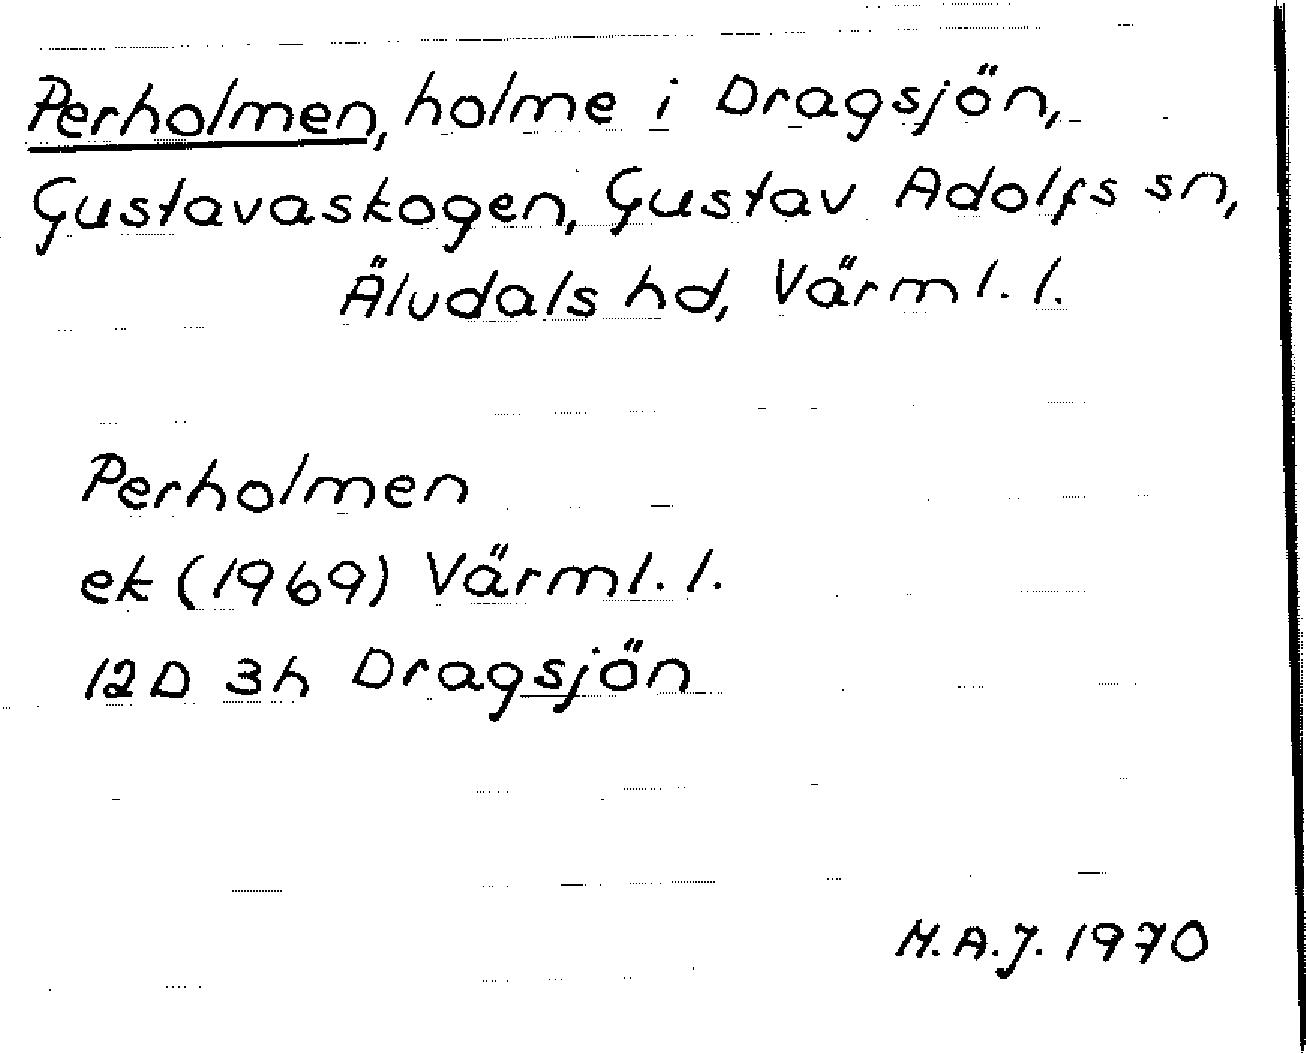 Perholmen, holme i Dragsjön,
Gustavaskogen, Gustav Adolfs sn,
Älvdals hd, Värml. l.
Perholmen
ek (1969) Värml. l.
12D 3h Dragsjön
M.A.J. 1970